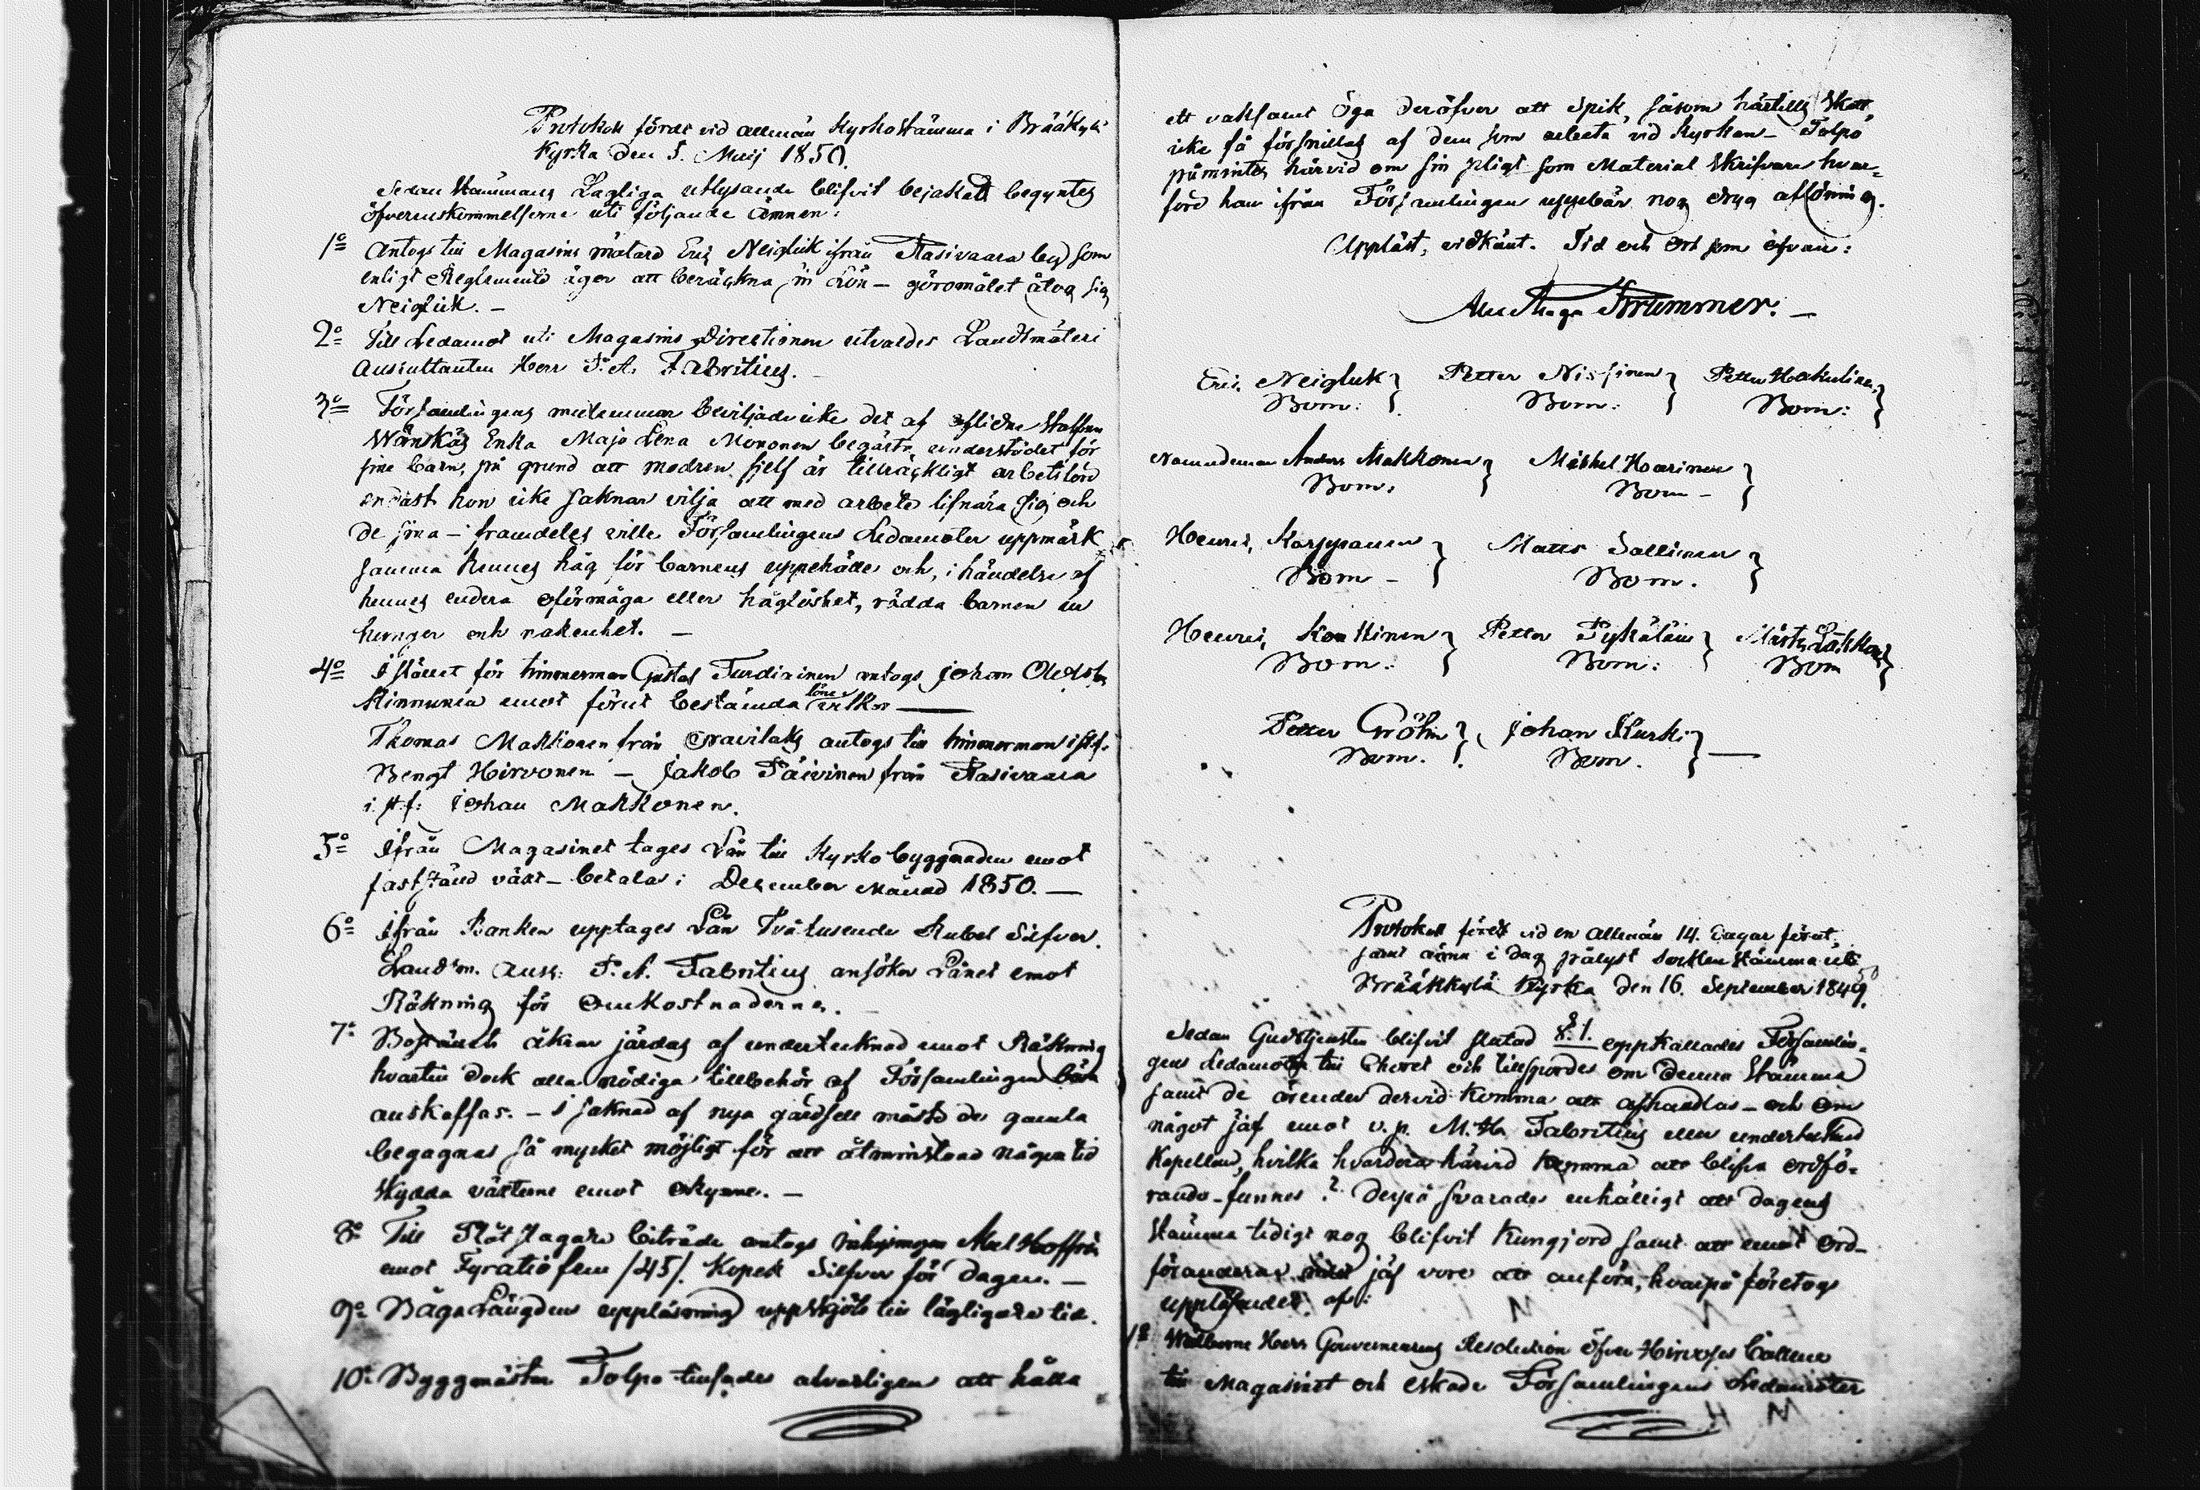 Protokoll fördt vid allmän Kyrkostämma i Bräkylä
Kyrka den 5. Maij 1850.
Sedan Stämmans Lagliga utlysande blifvit bejakadt begyntes
öfverenskommelserne uti följande ämnen:
1º Antogs till Magasins mätare Eric Neigluk ifrån Rasivaara by som
enligt Reglemente äger att beräkna sin Lön – göromålet åtog sig
Neigluk. –
2º Till Ledamot uti Magasins Directionen utvaldes Landtmäteri
Auscultanten Herr P. A. Fabritius. –
3º Församlingens medlemmar beviljade icke det af aflidne Staffan
Wänskäs Enka Maja Lena Mononen begärta understödet för
sine barn, på grund att modren sjelf är tillräckligt arbetsför
endast hon icke saknar vilja att med arbete lifnära sig och
de sina – framdeles ville Församlingens Ledamöter uppmärk
samma hennes håg för barnens uppehälle och, i händelse af
hennes endera oförmåga eller håglöshet, rädda barnen ur
hunger och nakenhet. –
4º I stället för timmerman Gustaf Turdiainen antogs Johan
Kinnunen emot förut bestämda löne vilkor
Thomas Makkonen från Oravilaks antogs till timmerman i st.f.
Bengt Hirvonen – Jakob Päivinen från Rasivaara
i st.f. Johan Makkonen.
5º Ifrån Magasinet tages Lån till Kyrkobyggnaden emot
fastständ växt – betala i December Månad 1850. –
6º Ifrån Banken upptages Lån Tvåtusende Rubel Silfver.
Landtm. Ausk: P. A. Fabritius ansöker Lånet emot
Räkning för Omkostnaderna.
7º Boställets åkrar järdas af undertecknad emot Räkning
hvartill dock alla nödiga tillbehör af Församlingen böra
anskaffas. – I saknad af nya gärdsel måste de gamla
begagnas så mycket möjligt för att åtminstone någon tid
skydda växterne emot åkerne. –
8º Till Rotstagare biträde antogs Axel Hoffrén
emot Fyratiofem /45/ Kopek Silfver för dagen. –
9º Båga Längden uppläsning uppskjöts till lägligare tid.
10º Byggmästar Tolpo tillsades alvarligen att hålla
ett vaksamt öga deröfver att spik, såsom härtills skett,
icke få försnillas af dem som arbeta vid Kyrkan – Tolpo
påmintes härvid om sin pligt som Material Skrifvare hvar=
före han ifrån Församlingen uppbär nog dryg aflöning.
Uppläst, vidkänt. Tid och Ort som ofvan:
Trummer. –
Eric Neigluk Petter Nissinen Petter Hakulinen
Bom: Bom: Bom:
Nämndeman Anders Makkonen Mikkel Hoarinen
Bom. Bom –
Henric Karppanen Matts Sallinen
Bom – Bom.
Henric Konttinen Petter Pykäläin
Bom. Bom: Bom
Petter Gröhn Johan Kurki
Bom. Bom.
Protokoll fördt vid en allmän 14. dagar förut,
samt ännu i dag pålyst Sockenstämma uti
Bräkkylä Kyrka den 16. September 1849. 50
Sedan Gudstjensten blifvit slutad §.1. uppkallades Församlin=
gens Ledamöter till Choret och tillspordes om denna Stämma
samt de ärender dervid komma att afhandlas – och om
något jäf emot v.p. M.H. Fabritius eller undertecknad
Kapellan, hvilka hvardera härvid komma att blifva ordfö=
rande – funnes? Derpå svarades enhälligt att dagens
Stämma tidigt nog blifvit kungjord samt att emot Ord=
föranderne intet jäf vore att anföra, hvarpå företogs
uppläsandet af:
1º Wälborne Herr Gouverneurens Resolution öfver Hirvosis
till Magasinet och eskade Församlingens Ledamöter